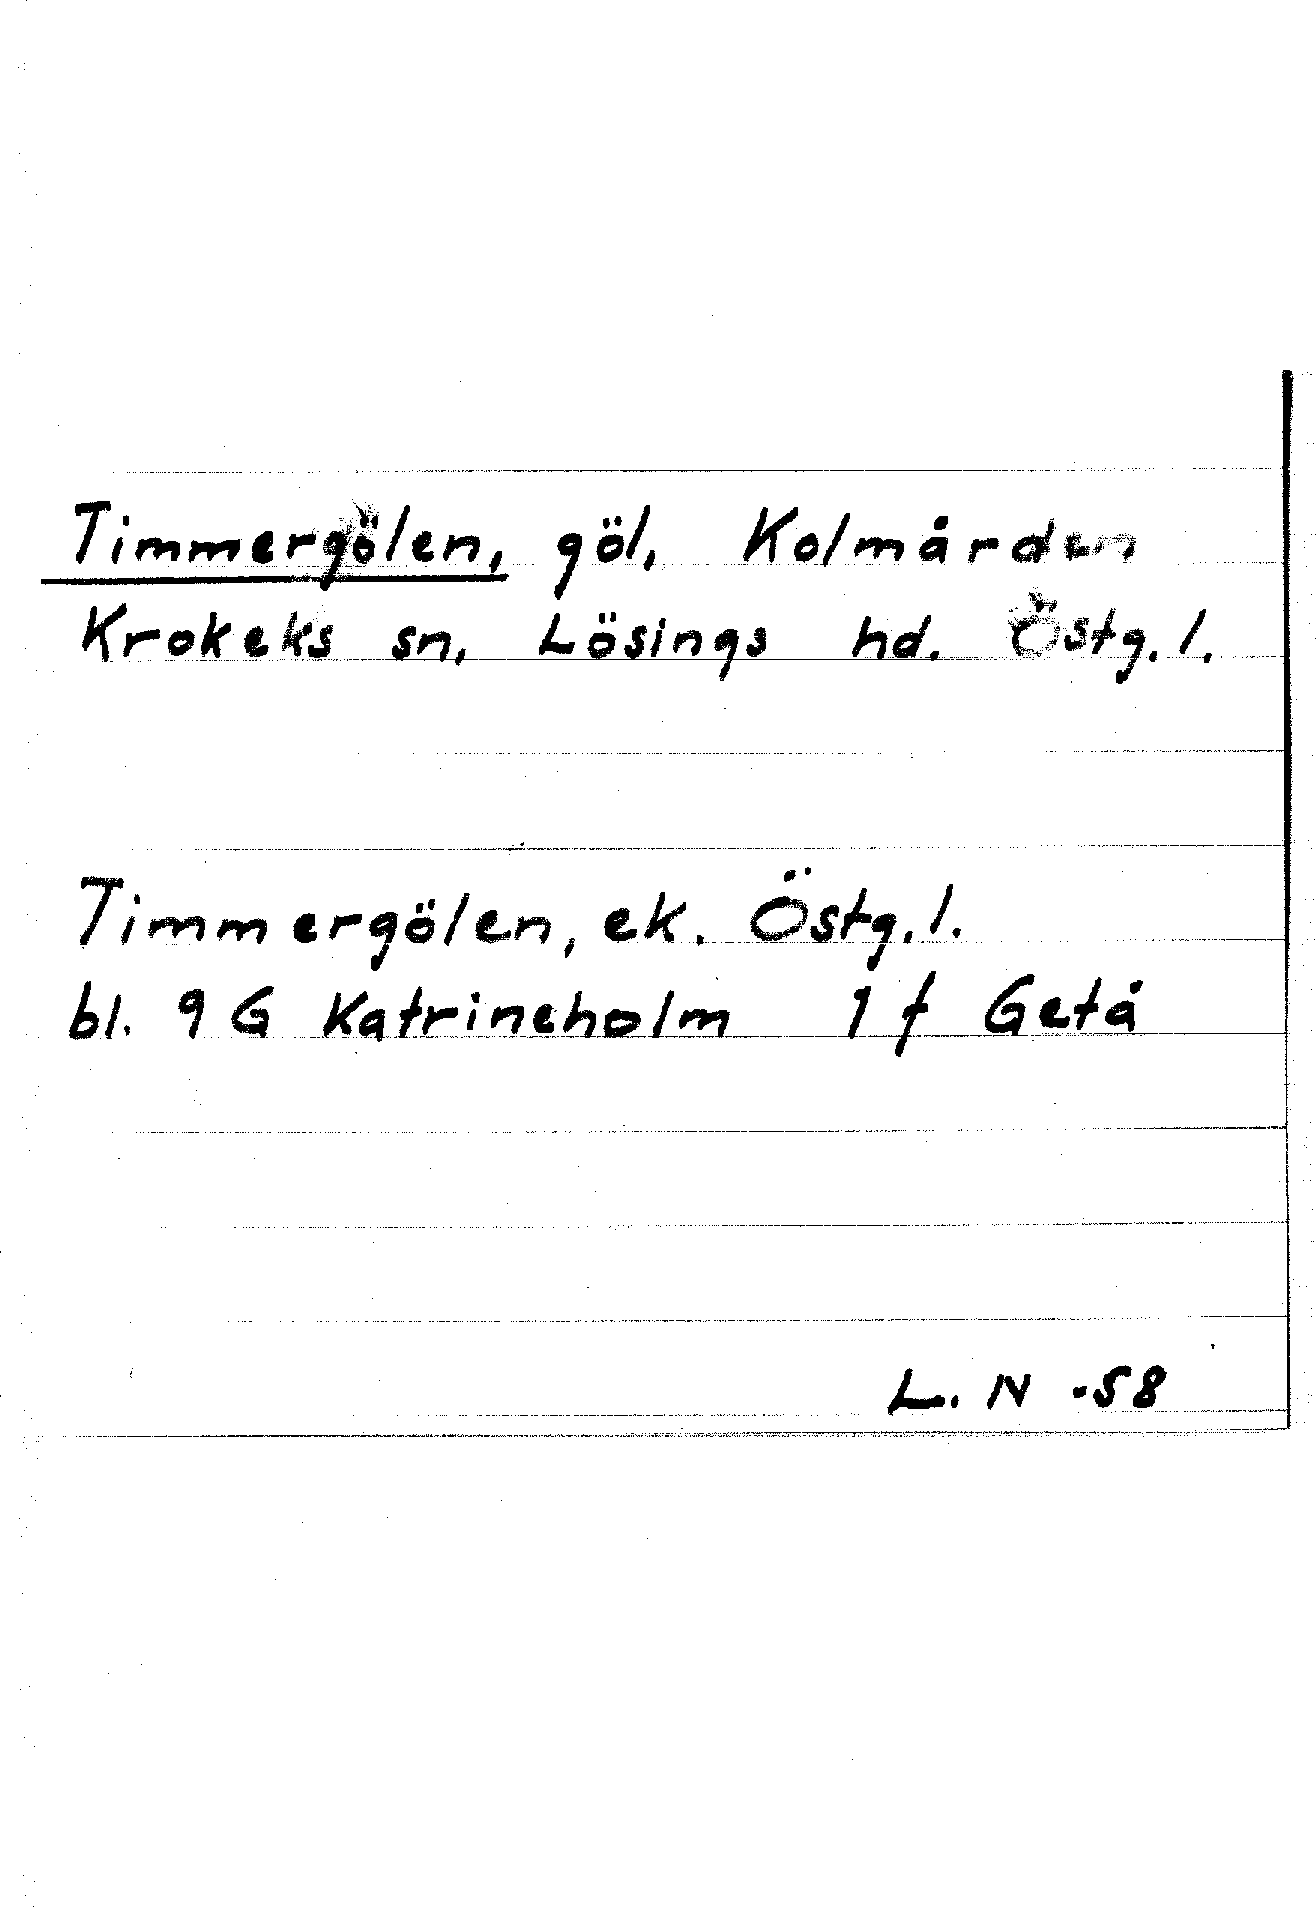 Timmergölen, göl, Kolmården
Krokeks sn, Lösings hd. Östg. l.
Timmergölen, ek. Östg. l.
bl. 9 G Katrineholm 1 f Getå
L. N -58